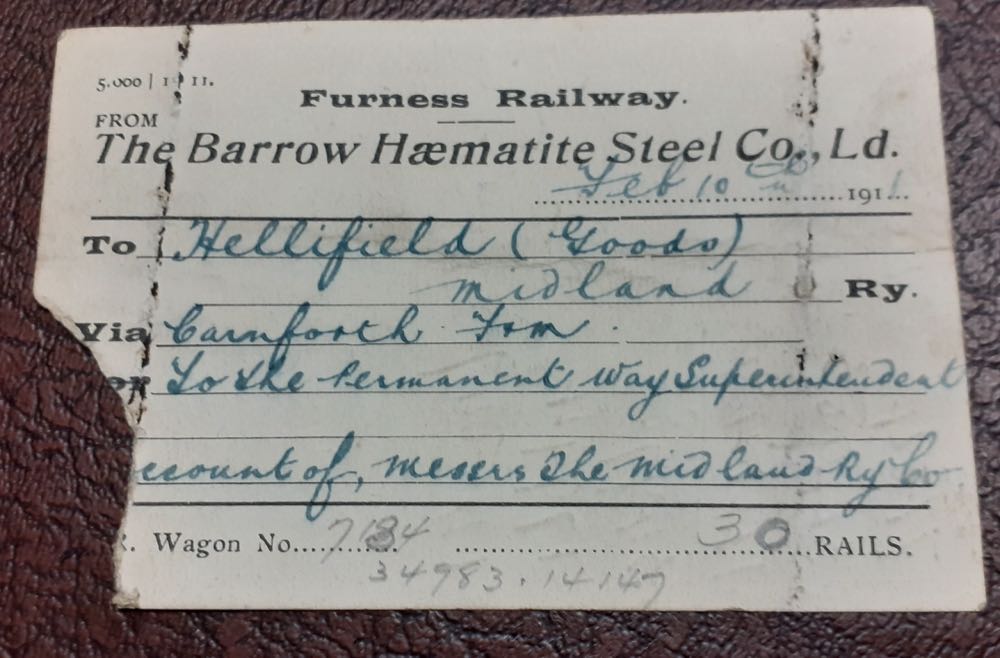 5.000 | 19 11.
Furness Railway.
FROM
The Barrow Hæmatite Steel Co., Ld.
Feb 10 1911
To Hellifield (Goods)
midland Ry.
Via Carnforth
To the Permanent Way Superintendent
ccount of, messrs The midland Ry Co.
R. Wagon No. 7134 30 RAILS.
34983. 14147